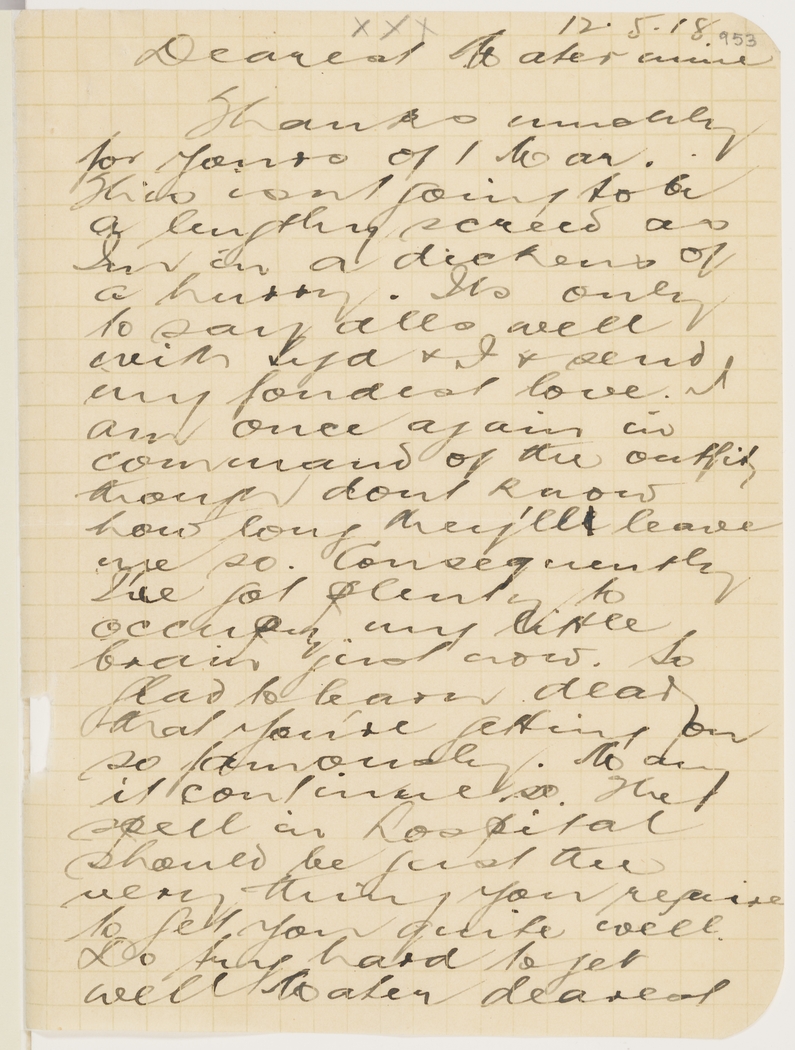 XXX 12.5.18 953
Dearest Mater mine
Thanks muchly
for yours of 1 Mar.
This isnt going to be
a lengthy screed as
Im in a dickens of
a hurry. Its only
to say alls well
with Syd & I & send
my fondest love. I
am once again in
command of the outfit,
though dont know
how long they'll leave
me so. Consequently
I've got plenty to
occupy my little
brain just now. So
glad to learn dear
that you're getting on
so famously. May
it continue so. The
spell in hospital
should be just the
very thing you require
to get you quite well.
Do try hard to get
well Mater dearest